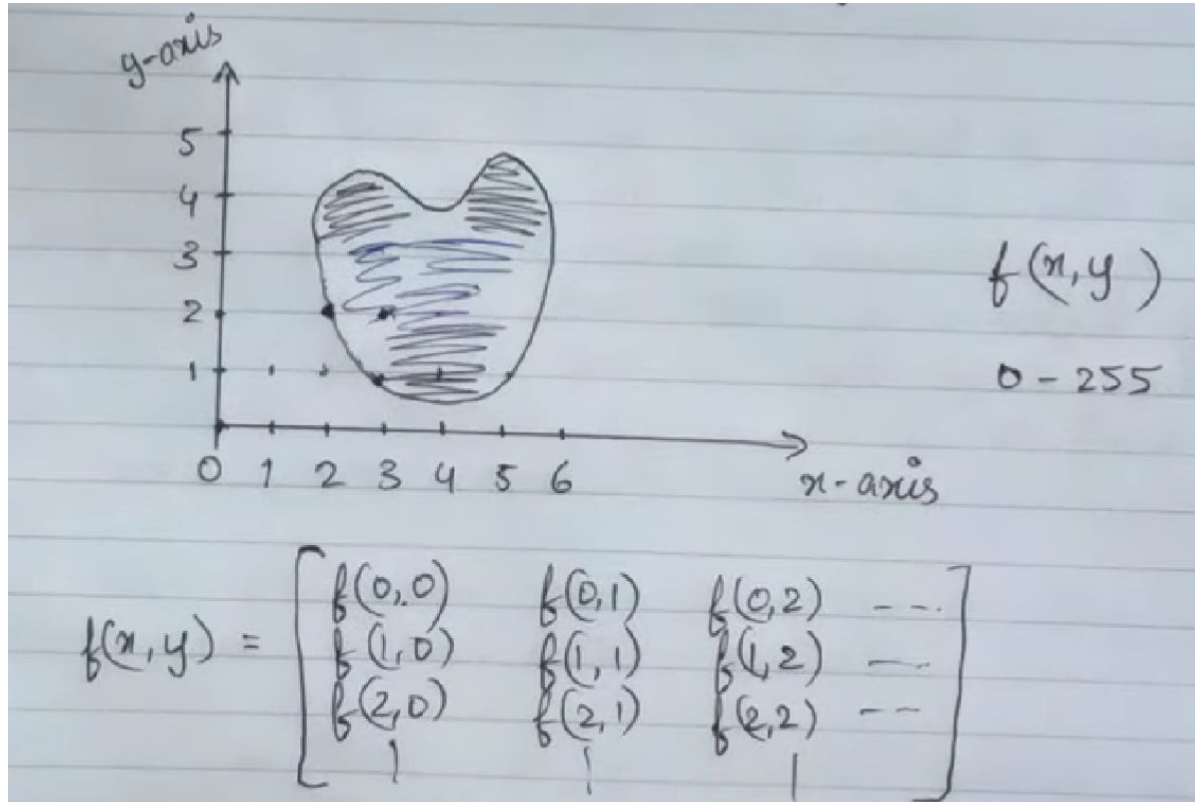 y-axis
5
4
3
2
1
0 1 2 3 4 5 6
x-axis
f(x,y)
0-255
f(x,y) = [ f(0,0) f(0,1) f(0,2) ---
f(1,0) f(1,1) f(1,2) ---
f(2,0) f(2,1) f(2,2) -- ]